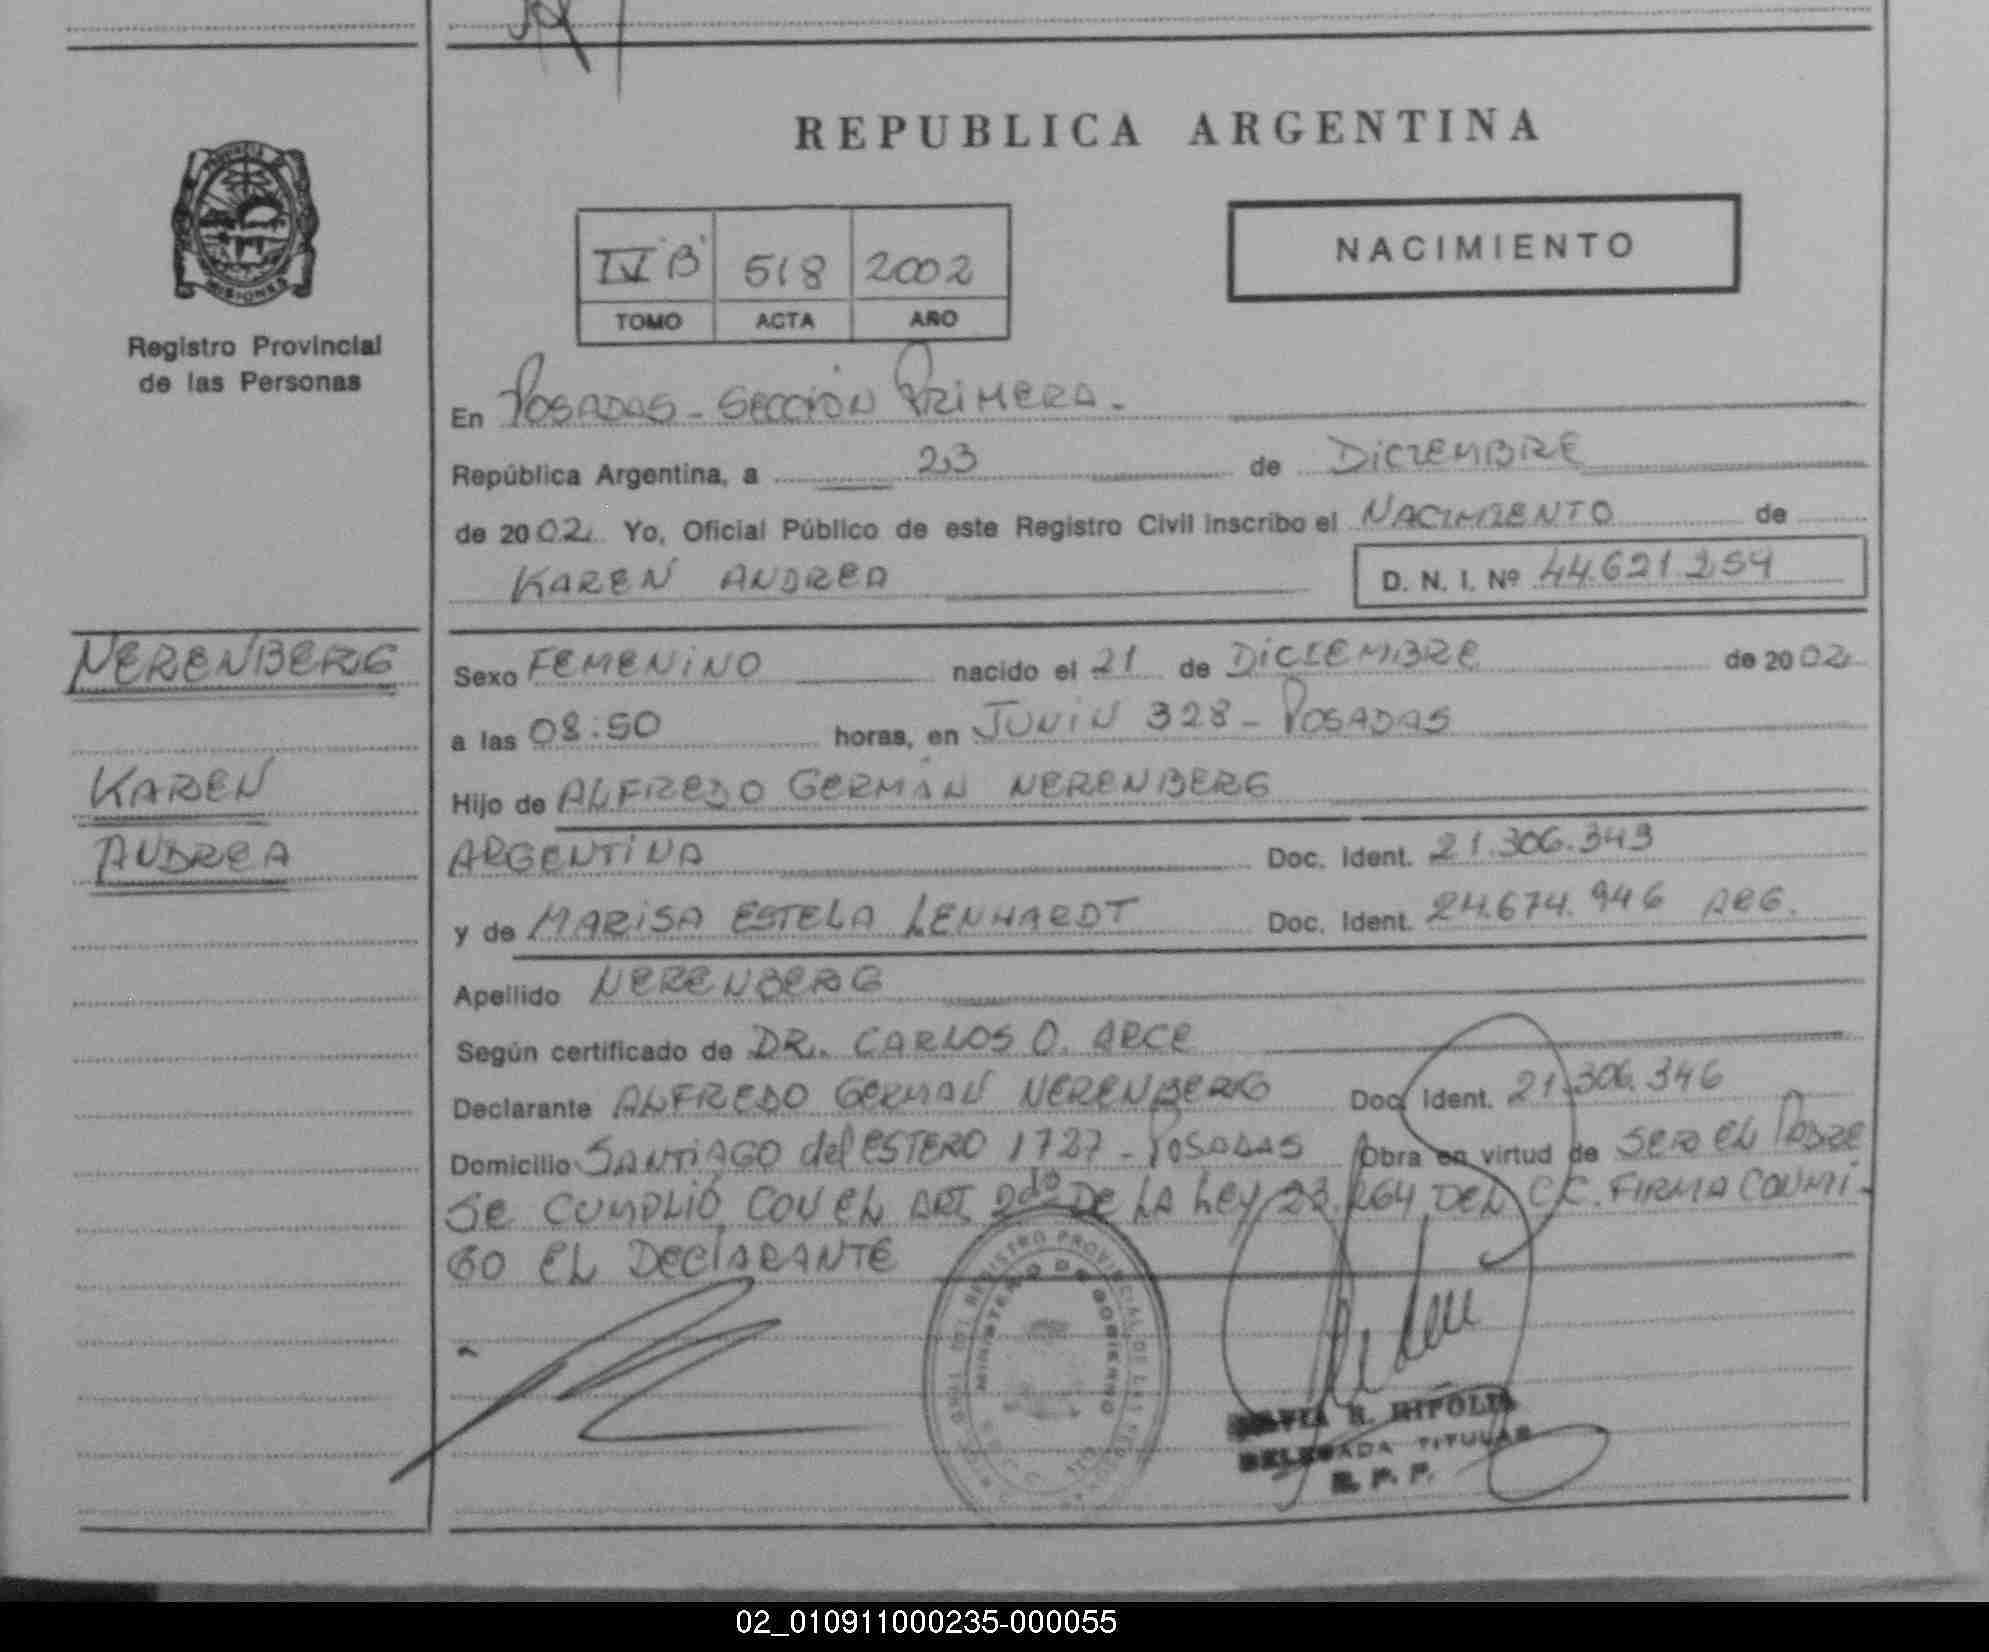 REPUBLICA ARGENTINA
PROVINCIA DE
MISIONES
Registro Provincial
de las Personas
IV "B" 518 2002
TOMO ACTA AÑO
NACIMIENTO
En POSADAS - SECCIÓN PRIMERA -
República Argentina, a 23 de DICIEMBRE
de 2002. Yo, Oficial Público de este Registro Civil inscribo el NACIMIENTO de
KAREN ANDREA D. N. I. Nº 44.621.254
NERENBERG
KAREN
ANDREA
Sexo FEMENINO nacido el 21 de DICIEMBRE de 2002
a las 08:50 horas, en JUNIN 328 - POSADAS
Hijo de ALFREDO GERMÁN NERENBERG
ARGENTINA Doc. Ident. 21.306.343
y de MARISA ESTELA LENHARDT Doc. Ident. 24.674.946 ARG.
Apellido NERENBERG
Según certificado de DR. CARLOS O. ARCE
Declarante ALFREDO GERMAN NERENBERG Doc. Ident. 21.306.346
Domicilio SANTIAGO del ESTERO 1727 - POSADAS Obra en virtud de SER EL PADRE
SE CUMPLIÓ CON EL ART. 2do DE LA LEY 23.264 DEL C.C. FIRMA CONMI-
GO EL DECLARANTE
REGISTRO PROVINCIAL DE LAS PERSONAS
MINISTERIO DE GOBIERNO
R. RIPOLL
DELEGADA TITULAR
R. P. P.
02_010911000235-000055